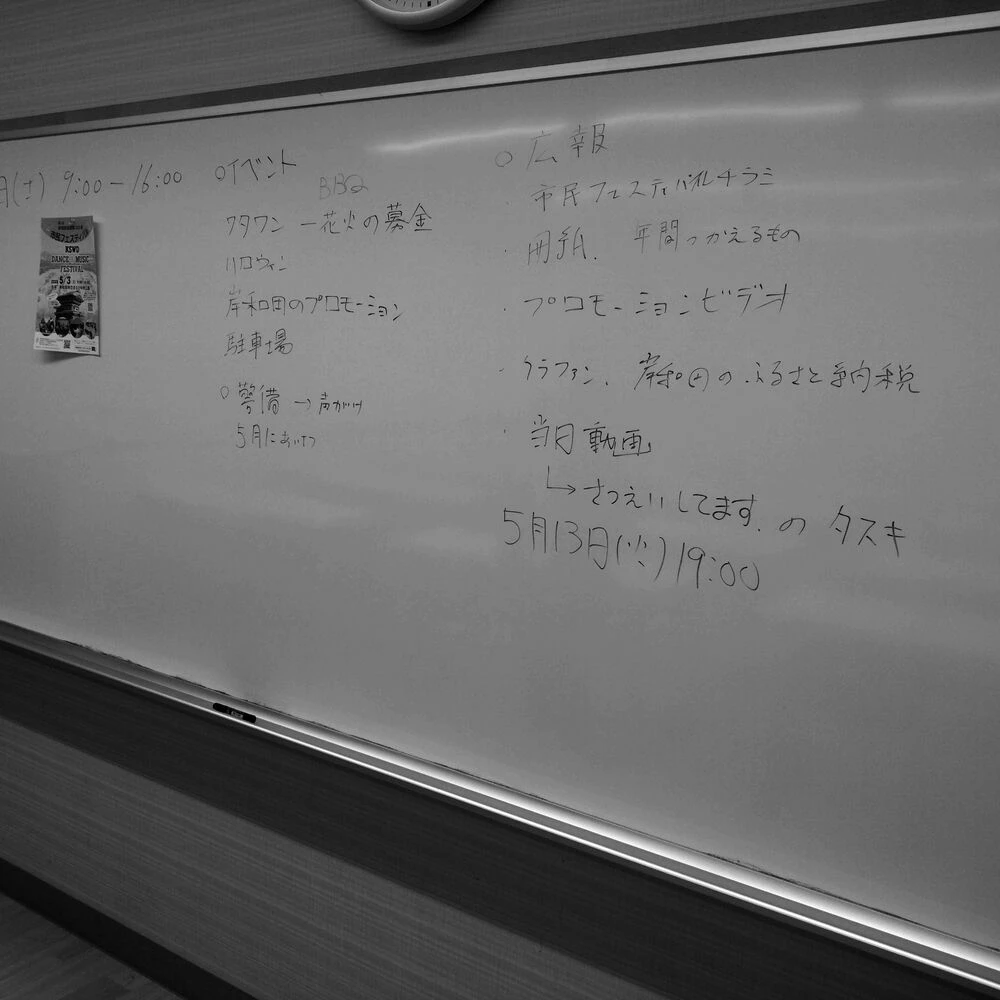 日(土) 9:00－16:00
市民フェスティバル
KSWO
DANCE MUSIC
FESTIVAL
5/3
○イベント
BBQ
ワタワン ー花火の募金
ハロウィン
岸和田のプロモーション
駐車場
○警備 → 声がけ
5月において
○広報
市民フェスティバルチラシ
・用紙. 年間つかえるもの
・プロモーションビデオ
・クラファン、岸和田のふるさと納税
・当日動画
↳さつえいしてます.のタスキ
5月13日(火)19:00